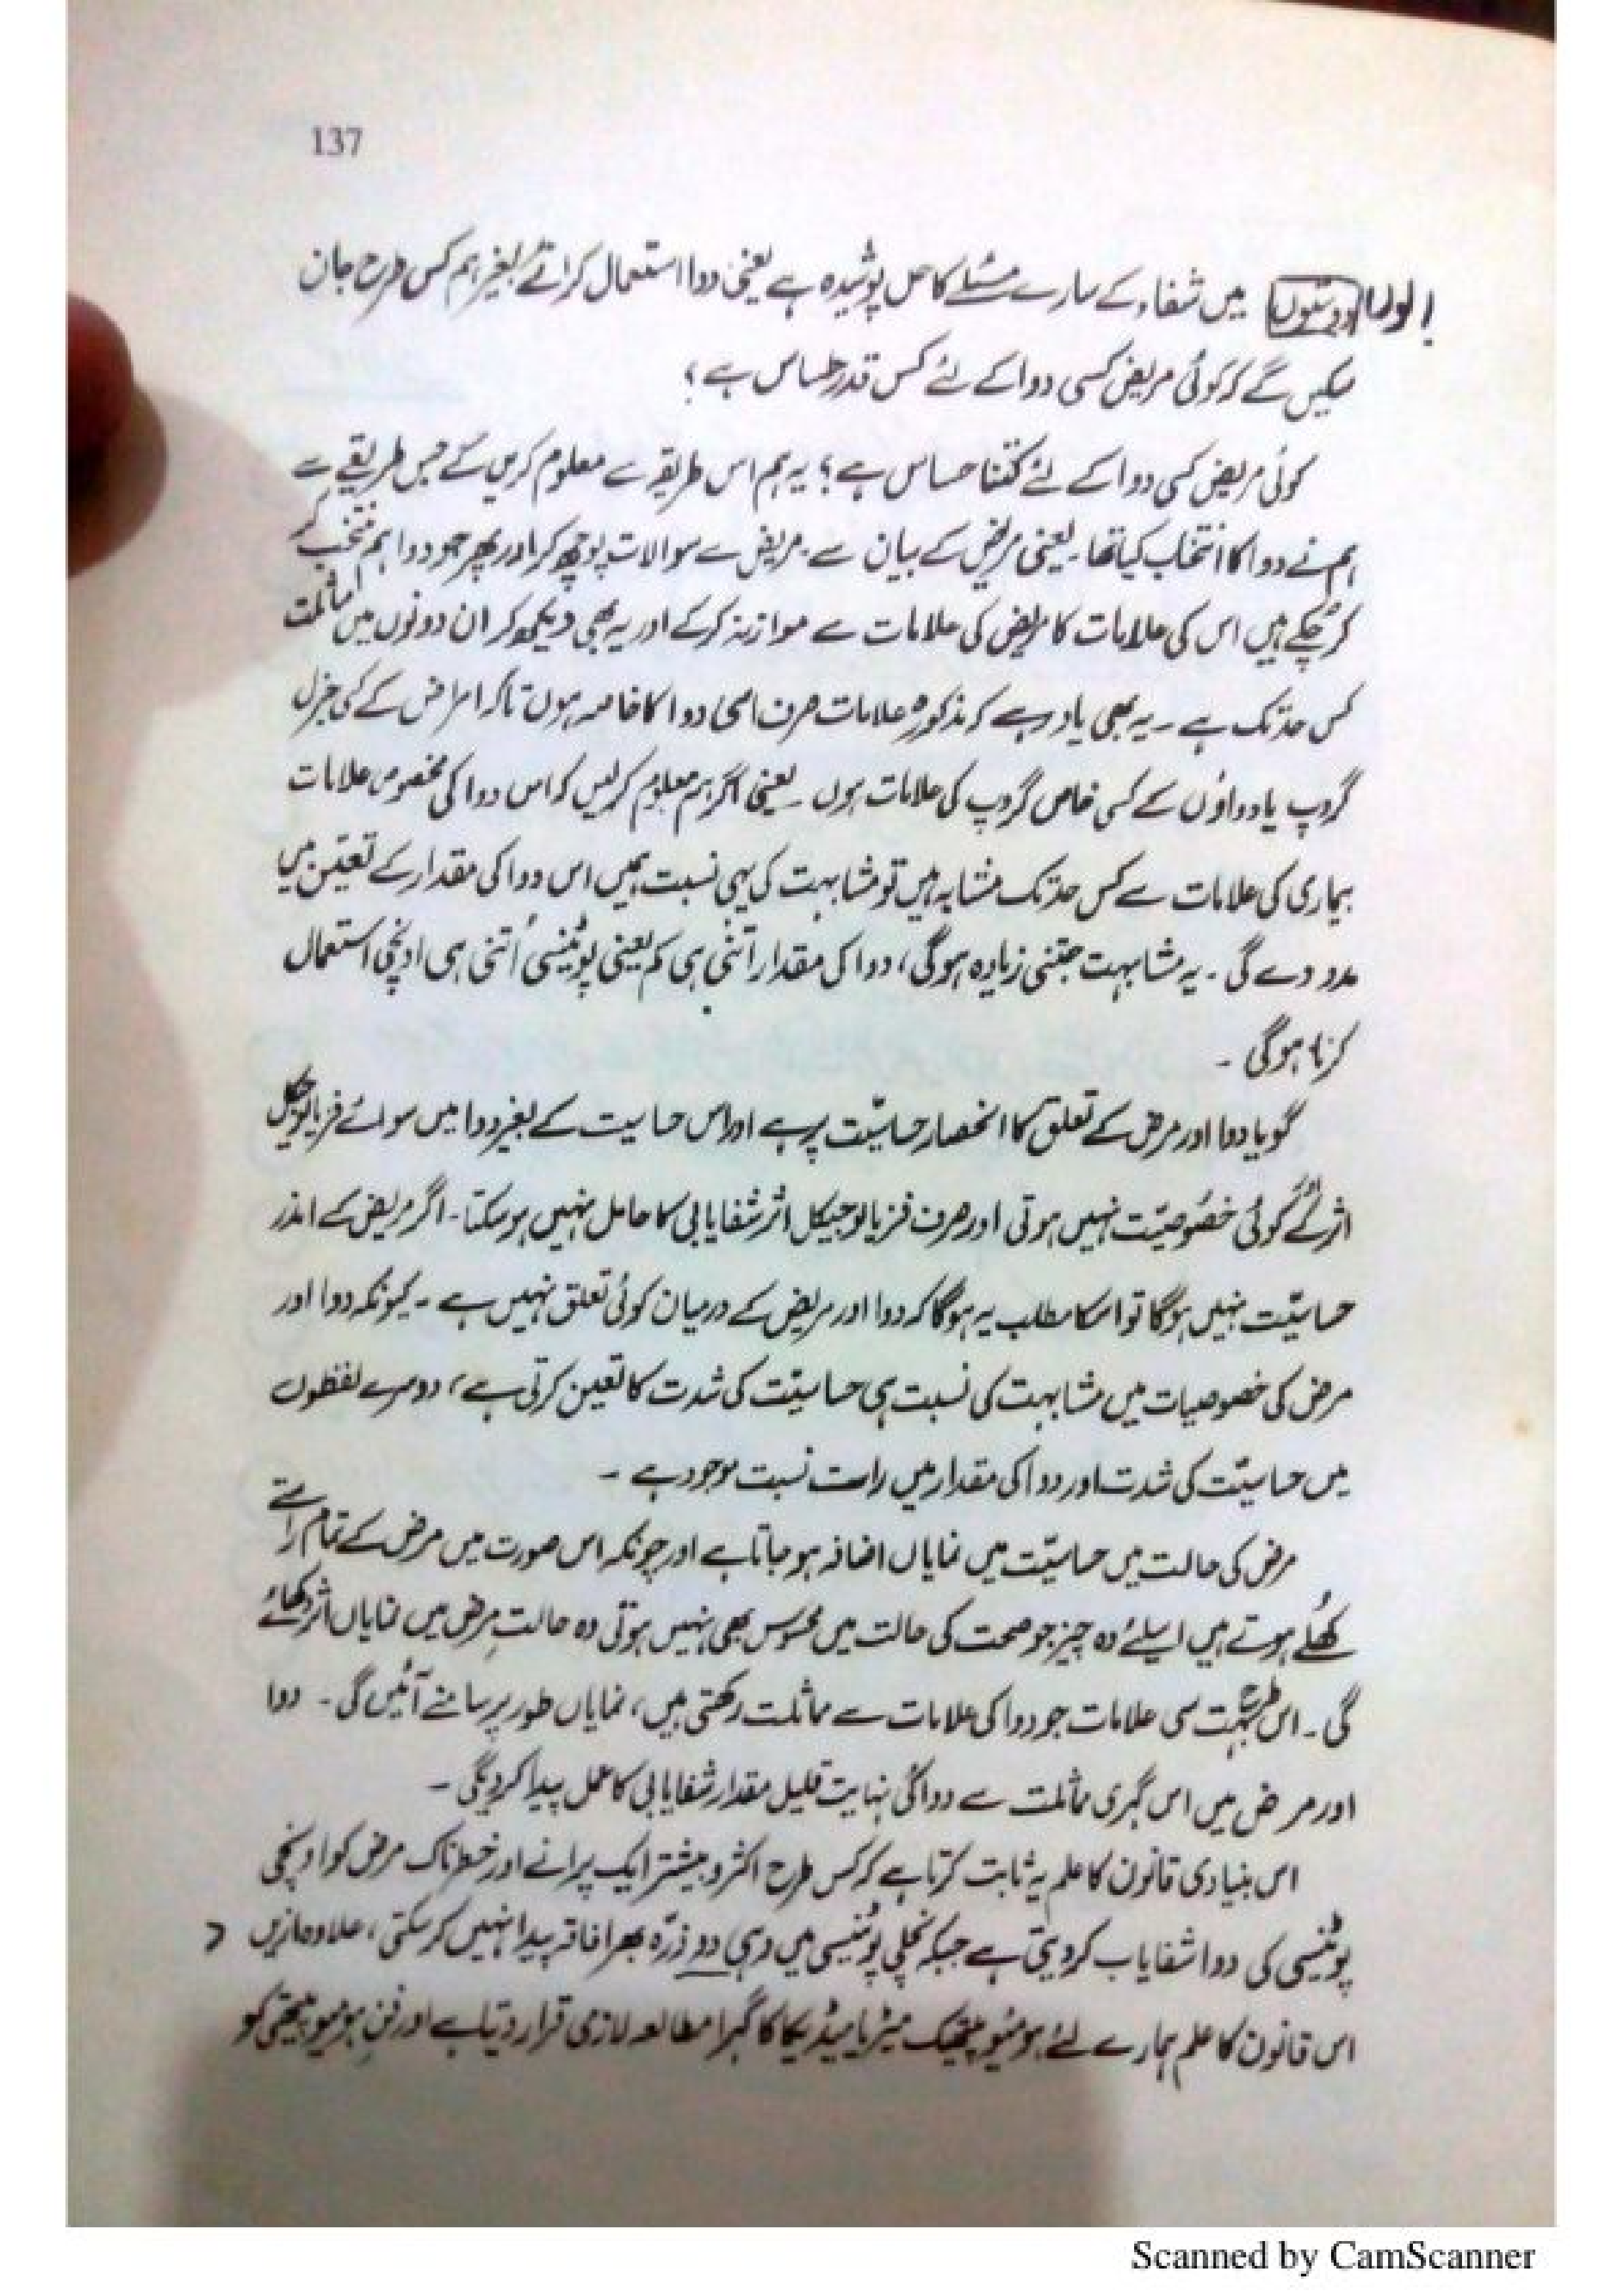 137
میں شفاء کے سارے مسئلے کا حل پوشیدہ ہے یعنی دوا استعمال کرائے بغیر ہم کس طرح جان
سکیں گے کہ کوئی مریض کسی دوا کے لئے کس قدر حساس ہے ؟
کوئی مریض کسی دوا کے لئے کتنا حساس ہے ؟ یہ ہم اس طریقہ سے معلوم کریں گے جس طریقے سے
ہم نے دوا کا انتخاب کیا تھا ۔ یعنی مریض کے بیان سے ۔ مریض سے سوالات پوچھ کر اور پھر جو دوا ہم منتخب کر
کر چکے ہیں اس کی علامات کا مریض کی علامات سے موازنہ کر کے اور یہ بھی دیکھ کر ان دونوں میں مماثلت
کس حد تک ہے ۔ یہ بھی یاد رہے کہ مذکورہ علامات صرف اسی دوا کا خاصہ ہوں تاکہ امراض کے کسی جنرل
گروپ یا دواؤں کے کسی خاص گروپ کی علامات ہوں ۔ یعنی اگر ہم معلوم کر لیں کہ اس دوا کی مخصوص علامات
بیماری کی علامات سے کس حد تک مشابہ ہیں تو مشابہت کی یہی نسبت ہمیں اس دوا کی مقدار کے تعیّن میں
مدد دے گی ۔ یہ مشابہت جتنی زیادہ ہوگی ، دوا کی مقدار اتنی ہی کم یعنی پوٹینسی اُتنی ہی اونچی استعمال
کرنا ہوگی ۔
گویا دوا اور مرض کے تعلق کا انحصار حساسیّت پر ہے اور اس حساسیت کے بغیر دوا میں سوائے فزیالوجیکل
اثر کے کوئی خصُوصیّت نہیں ہوتی اور صرف فزیالوجیکل اثر شفایابی کا حامل نہیں ہو سکتا ۔ اگر مریض کے اندر
حساسیّت نہیں ہوگا تو اسکا مطلب یہ ہوگا کہ دوا اور مریض کے درمیان کوئی تعلق نہیں ہے ۔ کیونکہ دوا اور
مرض کی خصوصیات میں مشابہت کی نسبت ہی حساسیّت کی شدت کا تعین کرتی ہے ، دوسرے لفظوں
میں حساسیّت کی شدت اور دوا کی مقدار میں راست نسبت موجود ہے ۔
مرض کی حالت میں حساسیّت میں نمایاں اضافہ ہو جاتا ہے اور چونکہ اس صورت میں مرض کے تمام راستے
کھُلے ہوتے ہیں اسلئے وہ چیز جو صحت کی حالت میں محسوس بھی نہیں ہوتی وہ حالتِ مرض میں نمایاں اثر دکھائے
گی ۔ اس طرح بہت سی علامات جو دوا کی علامات سے مماثلت رکھتی ہیں ، نمایاں طور پر سامنے آئیں گی ۔ دوا
اور مرض میں اس گہری مماثلت سے دوا کی نہایت قلیل مقدار شفایابی کا عمل پیدا کر دیگی ۔
اس بنیادی قانون کا علم یہ ثابت کرتا ہے کہ کس طرح اکثر و بیشتر ایک پرانے اور خطرناک مرض کو اونچی
پوٹینسی کی دوا شفایاب کر دیتی ہے جبکہ نچلی پوٹینسی میں وہی دوا ذرّہ بھر افاقہ پیدا نہیں کر سکتی ، علاوہ ازیں
اس قانون کا علم ہمارے لئے ہومیوپیتھک میٹریا میڈیکا کا گہرا مطالعہ لازمی قرار دیتا ہے اور فنِ ہومیوپیتھی کو
Scanned by CamScanner